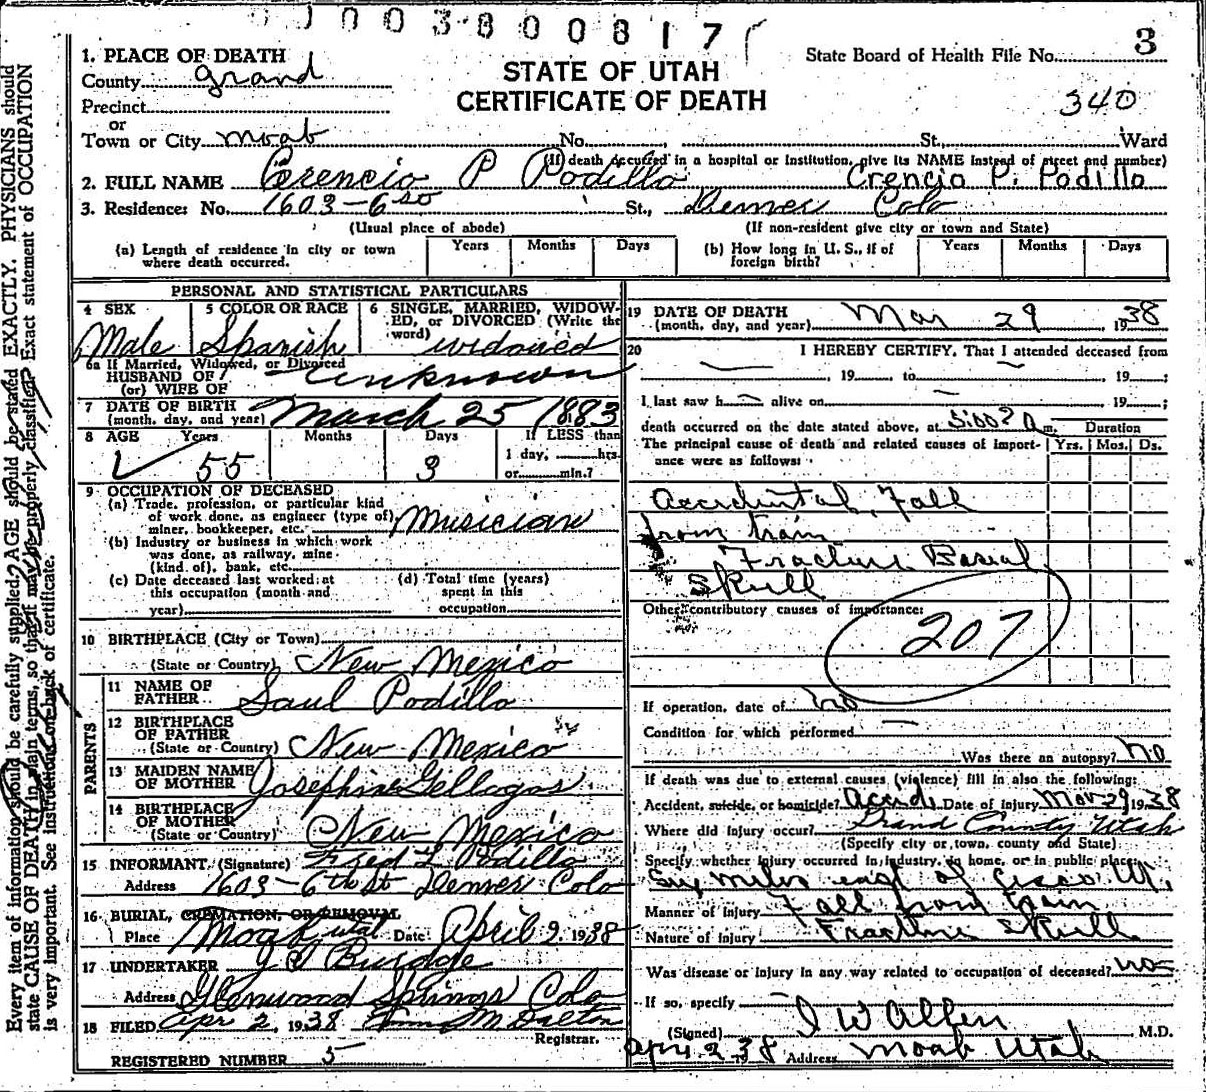 0100380081 7
3
State Board of Health File No.
STATE OF UTAH
CERTIFICATE OF DEATH
340
1. PLACE OF DEATH
County Grand
Precinct
or
Town or City Moab No. St., Ward
(If death occurred in a hospital or institution, give its NAME instead of street and number)
2. FULL NAME Crencio P Podillo Crencio P. Podillo
3. Residence: No. 1603-6 St., Denver Colo
(Usual place of abode) (If non-resident give city or town and State)
(a) Length of residence in city or town where death occurred. Years Months Days
(b) How long in U. S., if of foreign birth? Years Months Days
PERSONAL AND STATISTICAL PARTICULARS
4 SEX 5 COLOR OR RACE 6 SINGLE, MARRIED, WIDOWED, or DIVORCED (Write the word)
Male Spanish widowed
6a If Married, Widowed, or Divorced
HUSBAND OF
(or) WIFE OF unknown
7 DATE OF BIRTH
(month, day, and year) March 25 1883
8 AGE Years Months Days If LESS than
1 day, hrs.
55 3 or min.?
9 OCCUPATION OF DECEASED
(a) Trade, profession, or particular kind
of work done, as engineer (type of)
miner, bookkeeper, etc. Musician
(b) Industry or business in which work
was done, as railway, mine
(kind of), bank, etc.
(c) Date deceased last worked at
this occupation (month and
year)
(d) Total time (years)
spent in this
occupation
10 BIRTHPLACE (City or Town)
(State or Country) New Mexico
PARENTS
11 NAME OF
FATHER Saul Podillo
12 BIRTHPLACE
OF FATHER
(State or Country) New Mexico
13 MAIDEN NAME
OF MOTHER Josephine Gellogos
14 BIRTHPLACE
OF MOTHER
(State or Country) New Mexico
15 INFORMANT (Signature) Fred L Podillo
Address 1603-6th St Denver Colo
16 BURIAL, CREMATION, OR REMOVAL
Place Moab Utah Date April 2 1938
17 UNDERTAKER Burdge
Address Glenwood Springs Colo
18 FILED Apr 2, 1938 M Dalton
Registrar.
REGISTERED NUMBER 5
19 DATE OF DEATH
(month, day, and year) Mar 29, 1938
20 I HEREBY CERTIFY, That I attended deceased from
, 19 to , 19 ;
I last saw h alive on 19 ;
death occurred on the date stated above, at 5:00? A m. Duration
The principal cause of death and related causes of importance were as follows: Yrs. Mos. Ds.
Accidental Fall
from train
Fracture Basial
Skull
Other contributory causes of importance:
207
If operation, date of no
Condition for which performed
Was there an autopsy? No
If death was due to external causes (violence) fill in also the following:
Accident, suicide, or homicide? Accid. Date of injury Mar 29, 1938
Where did injury occur? Grand County Utah
(Specify city or town, county and State)
Specify whether injury occurred in industry, in home, or in public place:
Six miles east of Cisco Ut.
Manner of Injury Fall from train
Nature of Injury Fracture Skull
Was disease or injury in any way related to occupation of deceased? no
If so, specify
(Signed) I W Allen M.D.
Apr. 2 38 Address Moab Utah
Every item of information should be carefully supplied. AGE should be stated EXACTLY. PHYSICIANS should
state CAUSE OF DEATH in plain terms, so that it may be properly classified. Exact statement of OCCUPATION
is very important. See instructions on back of certificate.